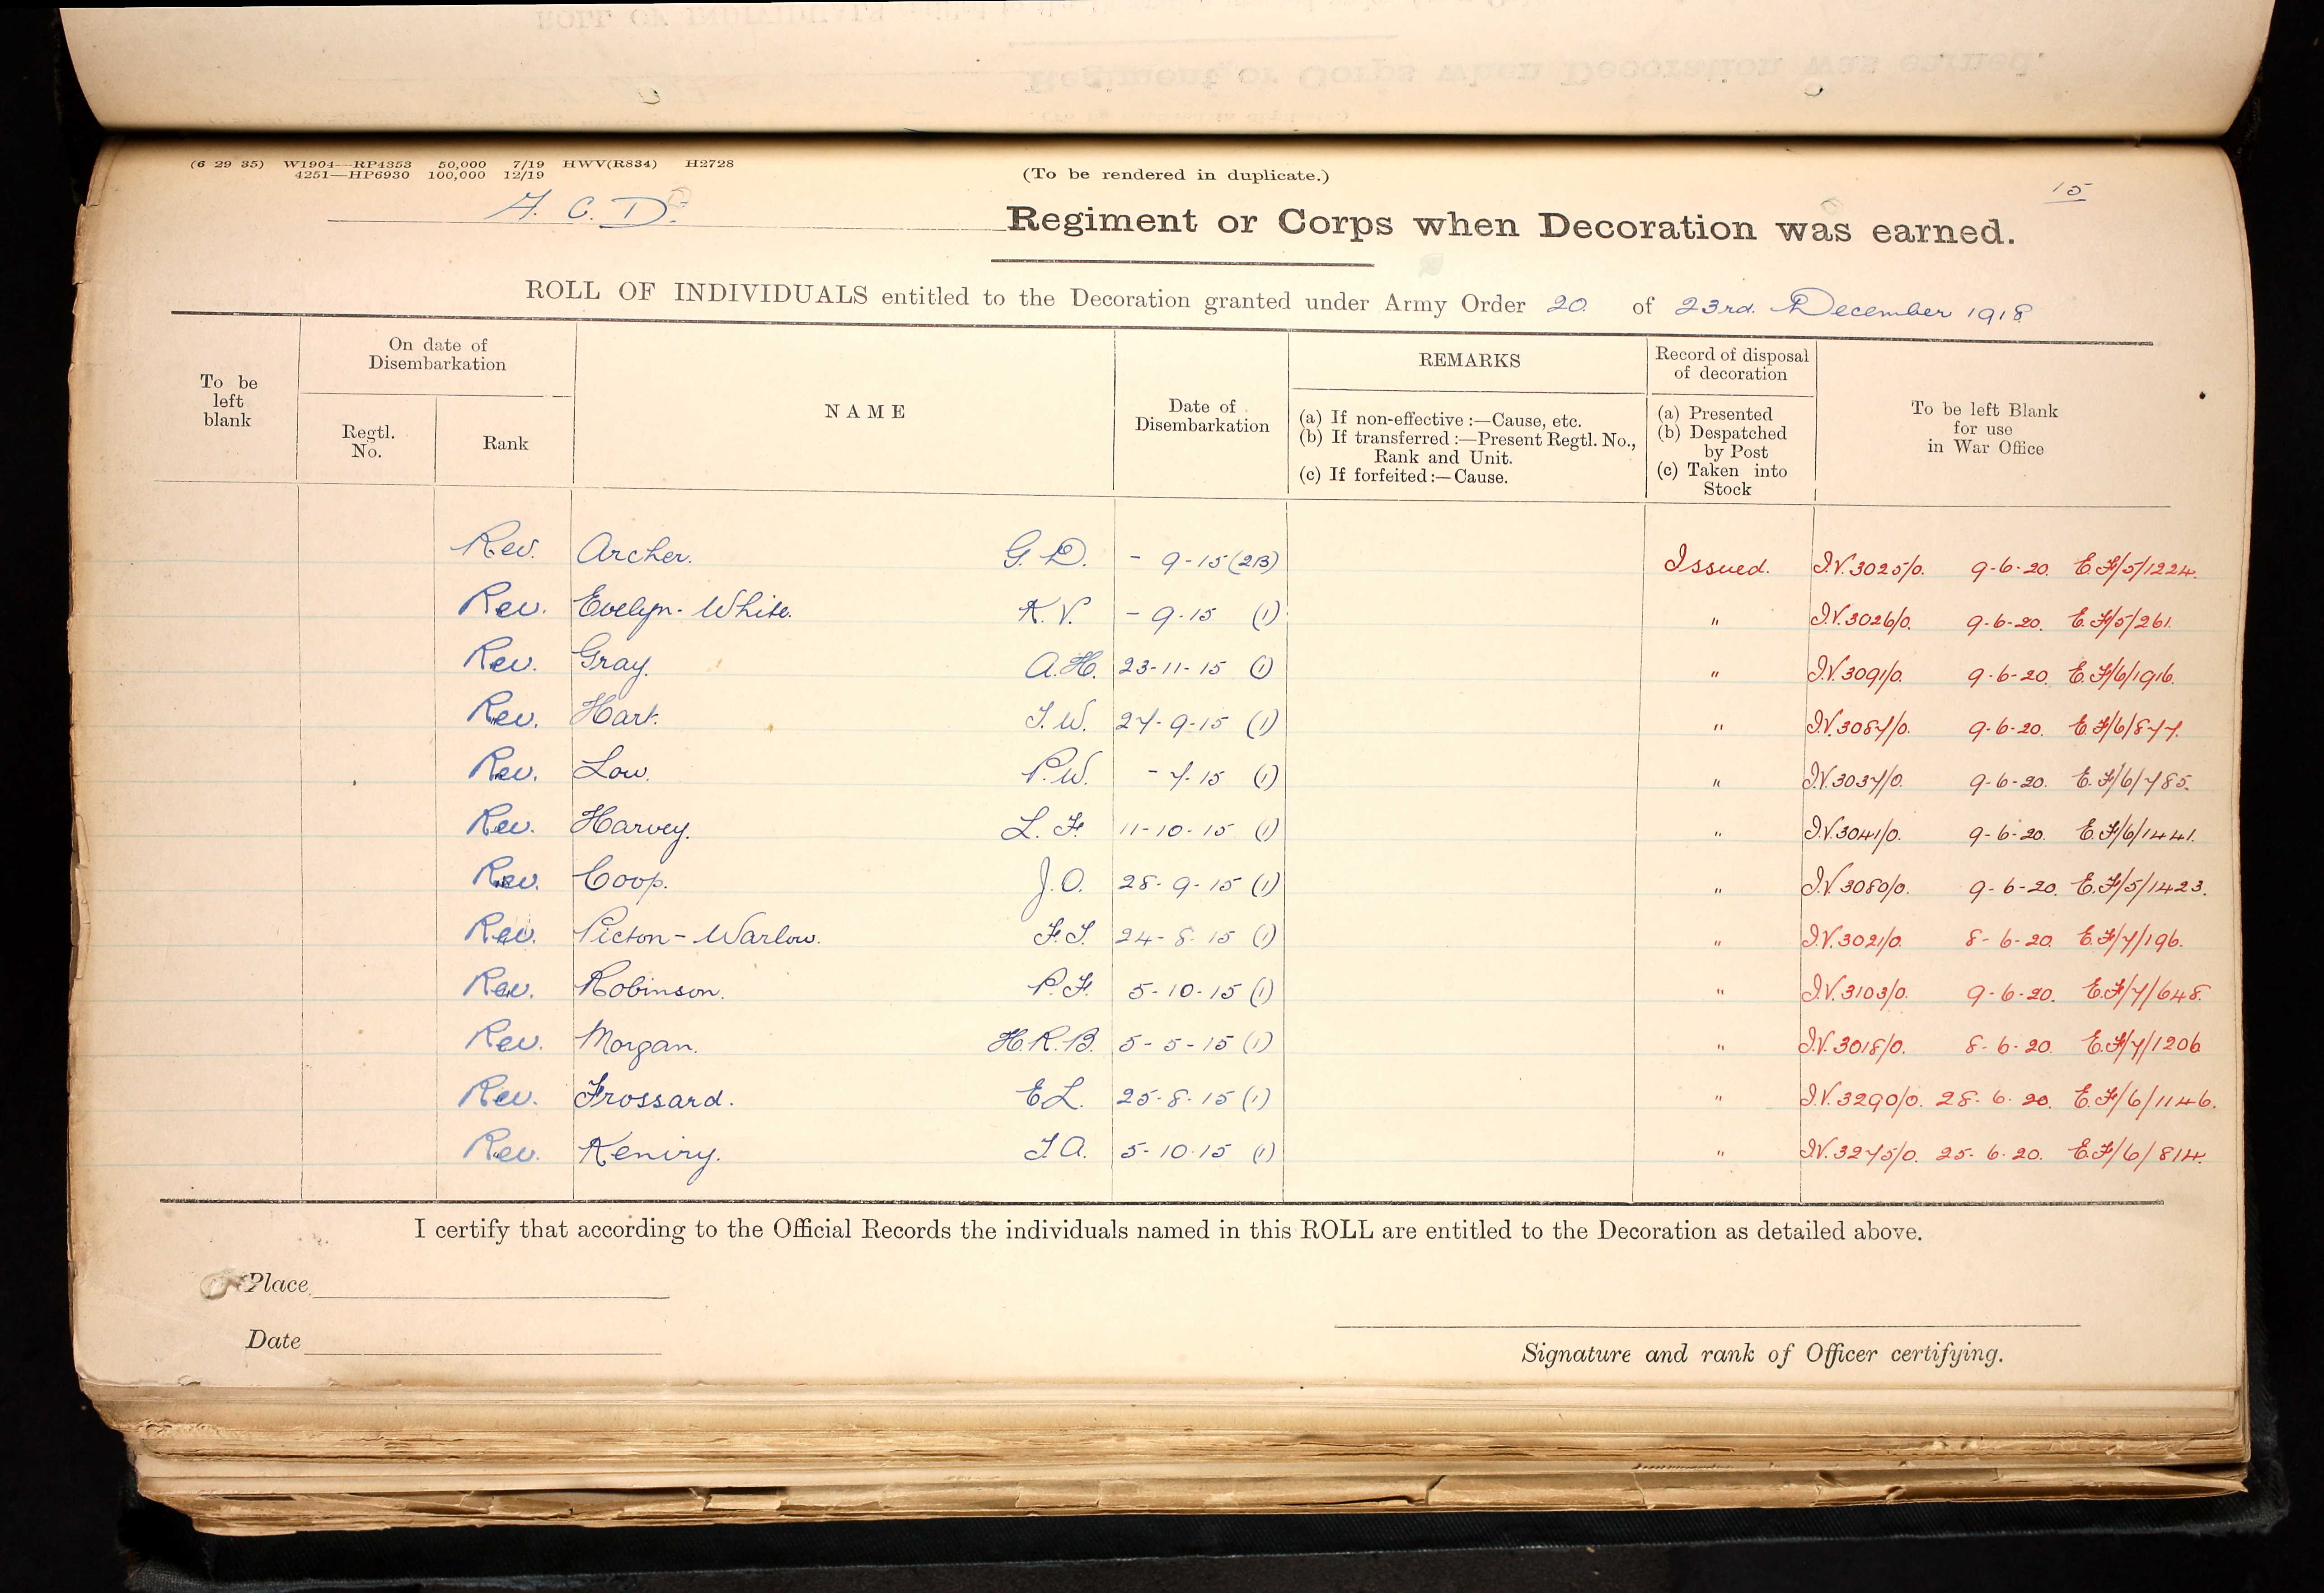 (6 29 35) W1904—RP4353 50,000 7/19 HWV(R834) H2728
4251—HP6930 100,000 12/19
(To be rendered in duplicate.)
15
A. C. D. Regiment or Corps when Decoration was earned.
ROLL OF INDIVIDUALS entitled to the Decoration granted under Army Order 20 of 23rd. December 1918
To be left blank
On date of Disembarkation
Regtl. No.
Rank
NAME
Date of Disembarkation
REMARKS
(a) If non-effective :—Cause, etc.
(b) If transferred :—Present Regtl. No., Rank and Unit.
(c) If forfeited :—Cause.
Record of disposal of decoration
(a) Presented
(b) Despatched by Post
(c) Taken into Stock
To be left Blank for use in War Office
Rev. Archer. G. D. - 9-15 (2B) Issued. I.V. 3025/0. 9-6-20. E.F/5/1224.
Rev. Evelyn-White. K. V. - 9-15 (1) " I.V. 3026/0. 9-6-20. E.F/5/261.
Rev. Gray. A. H. 23-11-15 (1) " I.V. 3091/0. 9-6-20. E.F/6/1916.
Rev. Hart. T. W. 27-9-15 (1) " I.V. 3087/0. 9-6-20. E.F/6/877.
Rev. Low. P. W. - 7-15 (1) " I.V. 3037/0. 9-6-20. E.F/6/785.
Rev. Harvey. L. F. 11-10-15 (1) " I.V. 3041/0. 9-6-20. E.F/6/1441.
Rev. Coop. J. O. 28-9-15 (1) " I.V. 3080/0. 9-6-20. E.F/5/1423.
Rev. Picton-Warlow. F. T. 24-8-15 (1) " I.V. 3021/0. 8-6-20. E.F/7/196.
Rev. Robinson. P. F. 5-10-15 (1) " I.V. 3103/0. 9-6-20. E.F/7/648.
Rev. Morgan. H. R. B. 5-5-15 (1) " I.V. 3018/0. 8-6-20. E.F/7/1206
Rev. Frossard. E L. 25-8-15 (1) " I.V. 3290/0. 28-6-20. E.F/6/1146.
Rev. Keniry. T A. 5-10-15 (1) " I.V. 3275/0. 25-6-20. E.F/6/814.
I certify that according to the Official Records the individuals named in this ROLL are entitled to the Decoration as detailed above.
Place
Date
Signature and rank of Officer certifying.